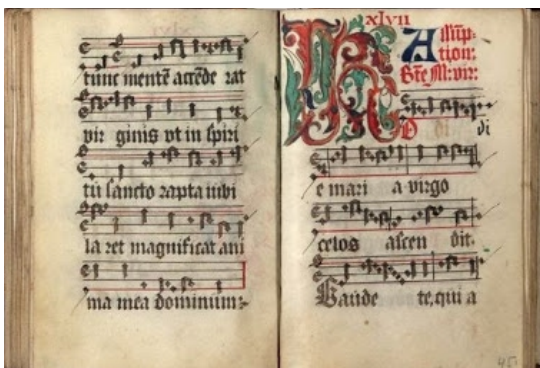 tunc mentē accēde rat
vir ginis vt in spiri
tu sancto rapta iubi
la ret magnificat ani
ma mea dominum:-
xlvii
Assūp:
tion:
Bte M: vir:
H O di
e mari a virgo
celos ascen dit.
Gaude te, qui a
45